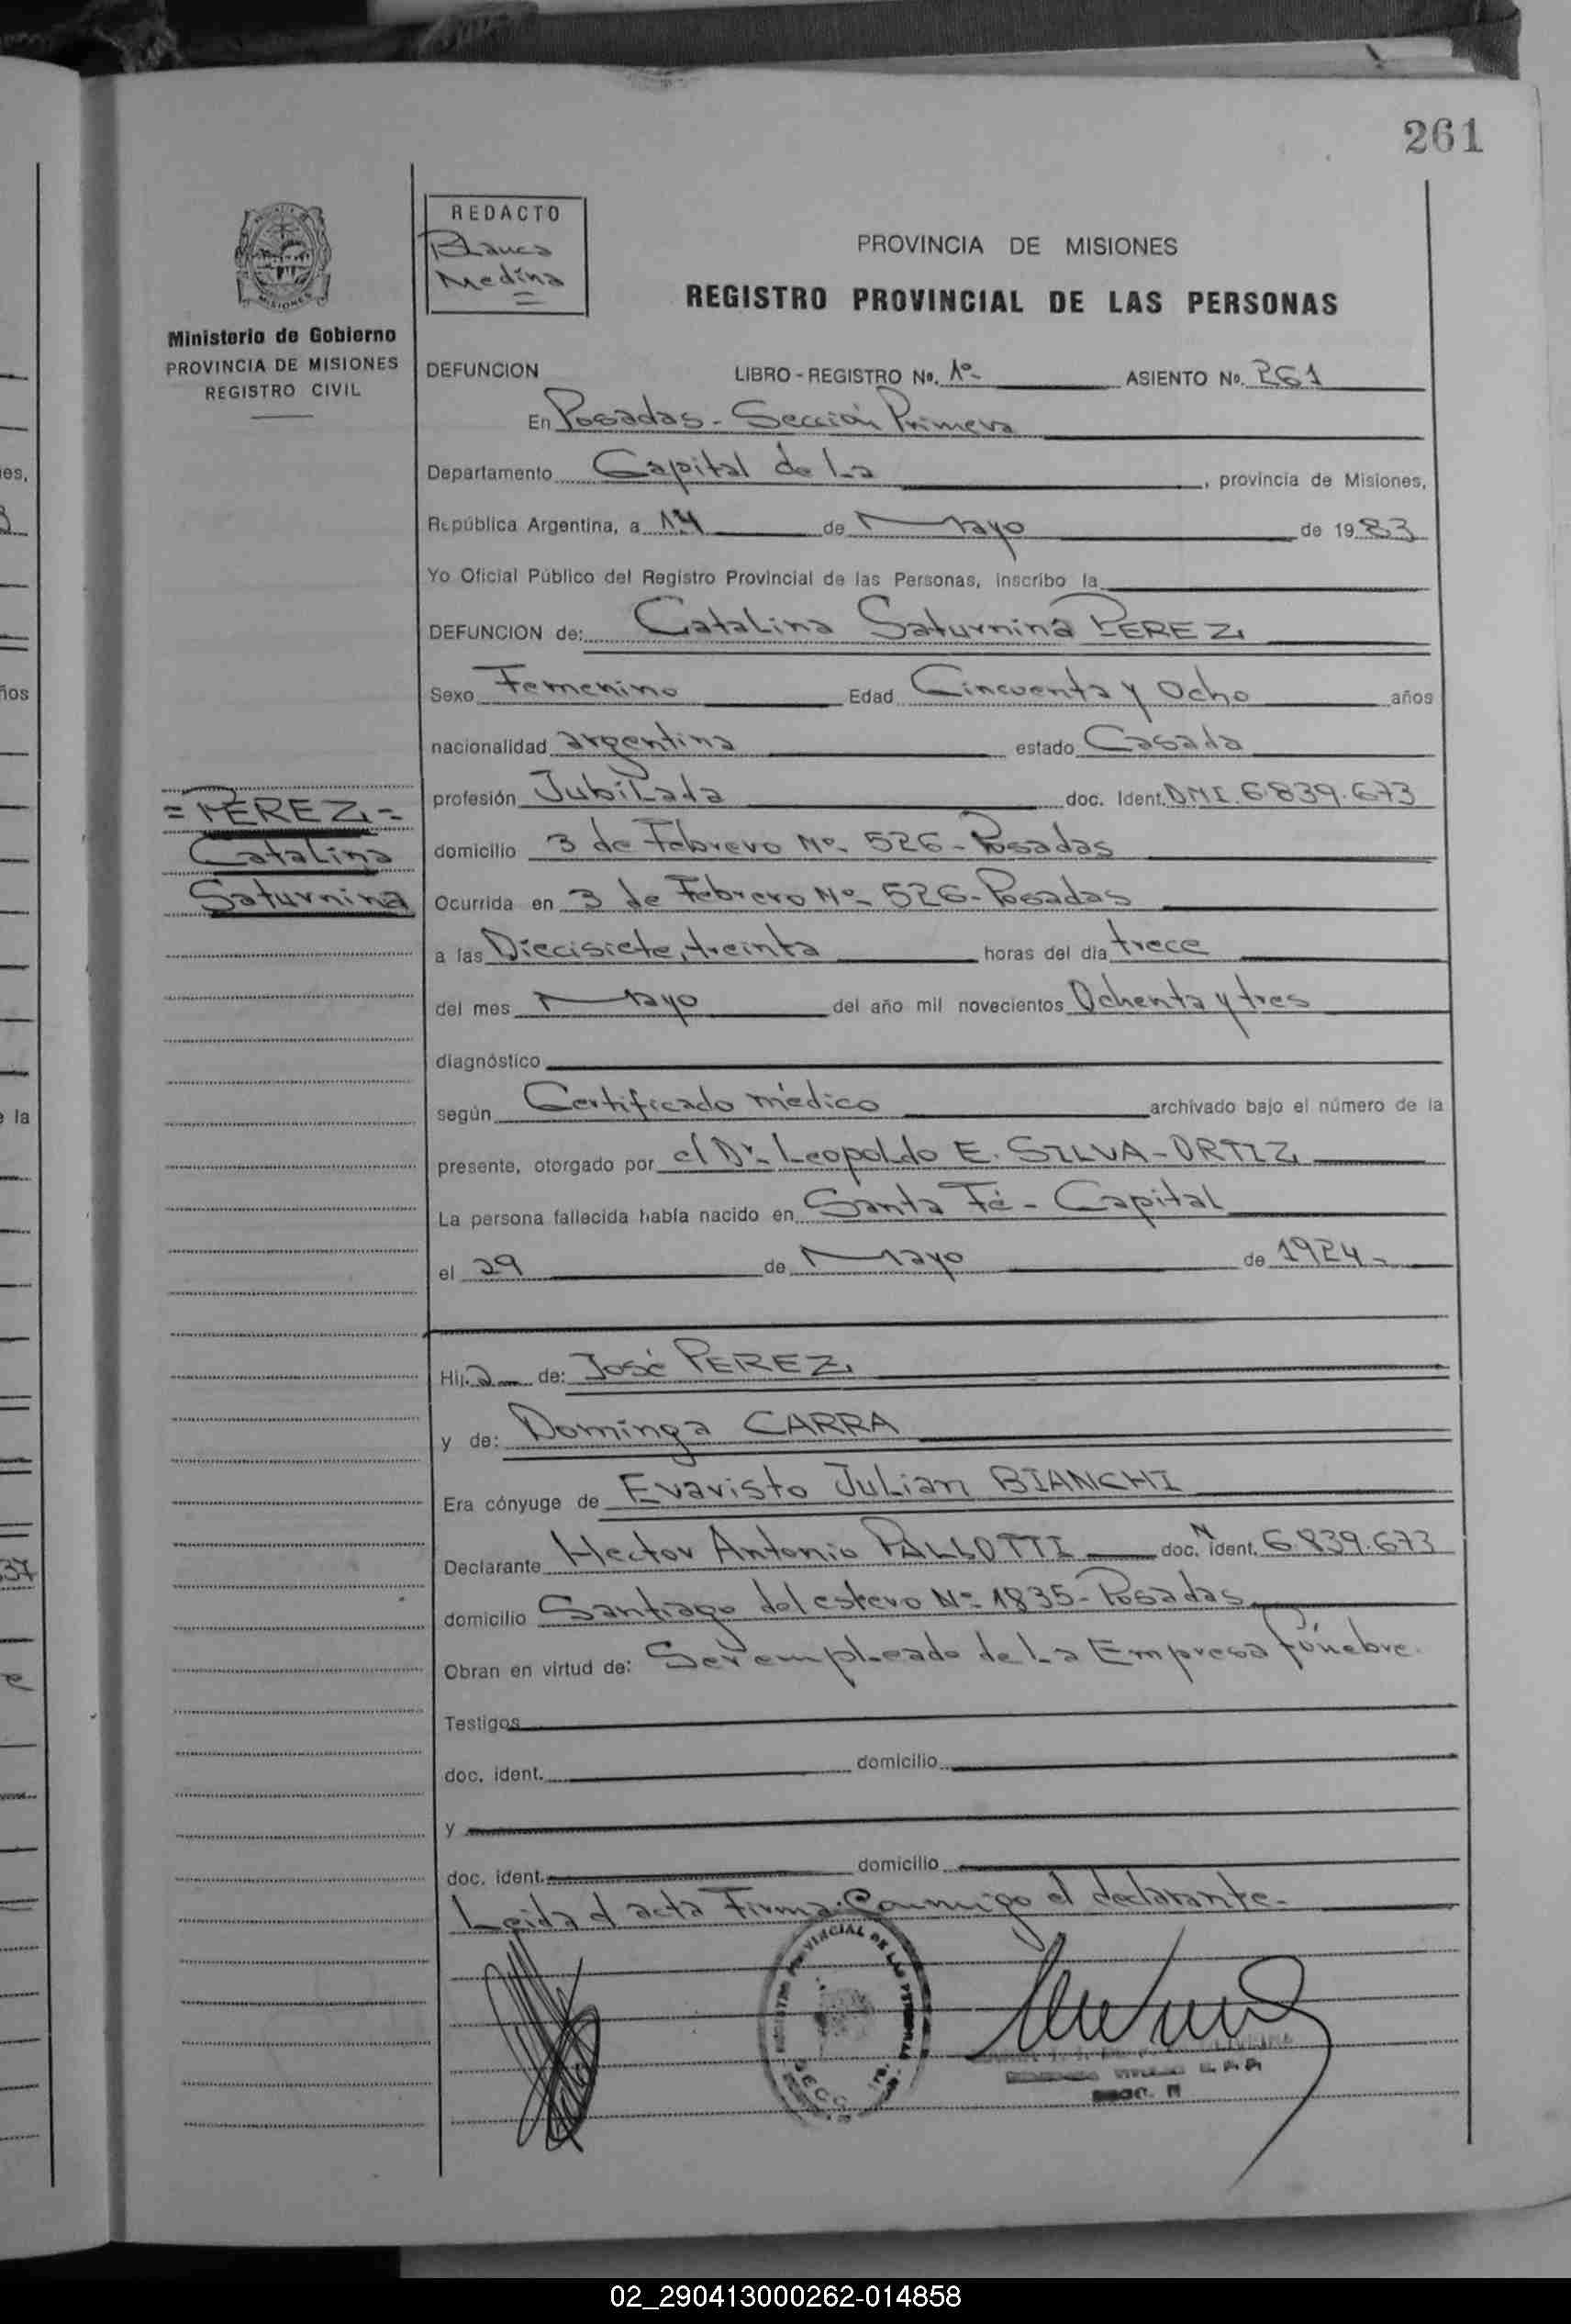 261
REDACTO
Blanca
Medina
PROVINCIA DE MISIONES
REGISTRO PROVINCIAL DE LAS PERSONAS
MISIONES
Ministerio de Gobierno
PROVINCIA DE MISIONES
REGISTRO CIVIL
DEFUNCION LIBRO - REGISTRO Nº. 1º- ASIENTO Nº. 261
En Posadas - Sección Primera
Departamento Capital de La, provincia de Misiones,
República Argentina, a 14 de Mayo de 1983
Yo Oficial Público del Registro Provincial de las Personas, inscribo la
DEFUNCION de: Catalina Saturnina PEREZ
Sexo Femenino Edad Cincuenta y Ocho años
nacionalidad argentina estado Casada
profesión Jubilada doc. Ident. DNI. 6.839.673
= PEREZ =
Catalina
Saturnina
domicilio 3 de Febrero Nº- 526- Posadas
Ocurrida en 3 de Febrero Nº- 526- Posadas
a las Diecisiete, treinta horas del día trece
del mes Mayo del año mil novecientos Ochenta y tres
diagnóstico
según Certificado médico archivado bajo el número de la
presente, otorgado por el Dr- Leopoldo E. SILVA-ORTIZ
La persona fallecida había nacido en Santa Fé - Capital
el 29 de Mayo de 1924-
Hij a de: José PEREZ
y de: Dominga CARRA
Era cónyuge de Evaristo Julian BIANCHI
Declarante Hector Antonio PALLOTTI doc. N ident. 6.839.673
domicilio Santiago del estero Nº- 1835- Posadas
Obran en virtud de: Ser empleado de La Empresa fúnebre.
Testigos
doc. ident. domicilio
y
doc. ident. domicilio
Leida el acta Firma Conmigo el declarante-
02_290413000262-014858